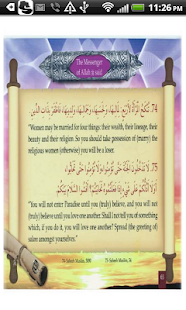 11:26 PM
The Messenger
of Allah ﷺ said
74. تُنْكَحُ الْمَرْأَةُ لِأَرْبَعٍ: لِمَالِهَا، وَلِحَسَبِهَا، وَلِجَمَالِهَا، وَلِدِينِهَا، فَاظْفَرْ بِذَاتِ الدِّينِ
"Women may be married for four things: their wealth, their lineage, their
beauty and their religion. So you should take possession of (marry) the
religious women (otherwise) you will be a loser.
75. لَا تَدْخُلُونَ الْجَنَّةَ حَتَّى تُؤْمِنُوا وَلَا تُؤْمِنُوا حَتَّى تَحَابُّوا،
أَوَلَا أَدُلُّكُمْ عَلَى شَيْءٍ إِذَا فَعَلْتُمُوهُ تَحَابَبْتُمْ؟ أَفْشُوا السَّلَامَ بَيْنَكُمْ
"You will not enter Paradise until you (truly) believe, and you will not
(truly) believe until you love one another. Shall I not tell you of something
which, if you do it, you will love one another? Spread (the greeting of)
salam amongst yourselves."